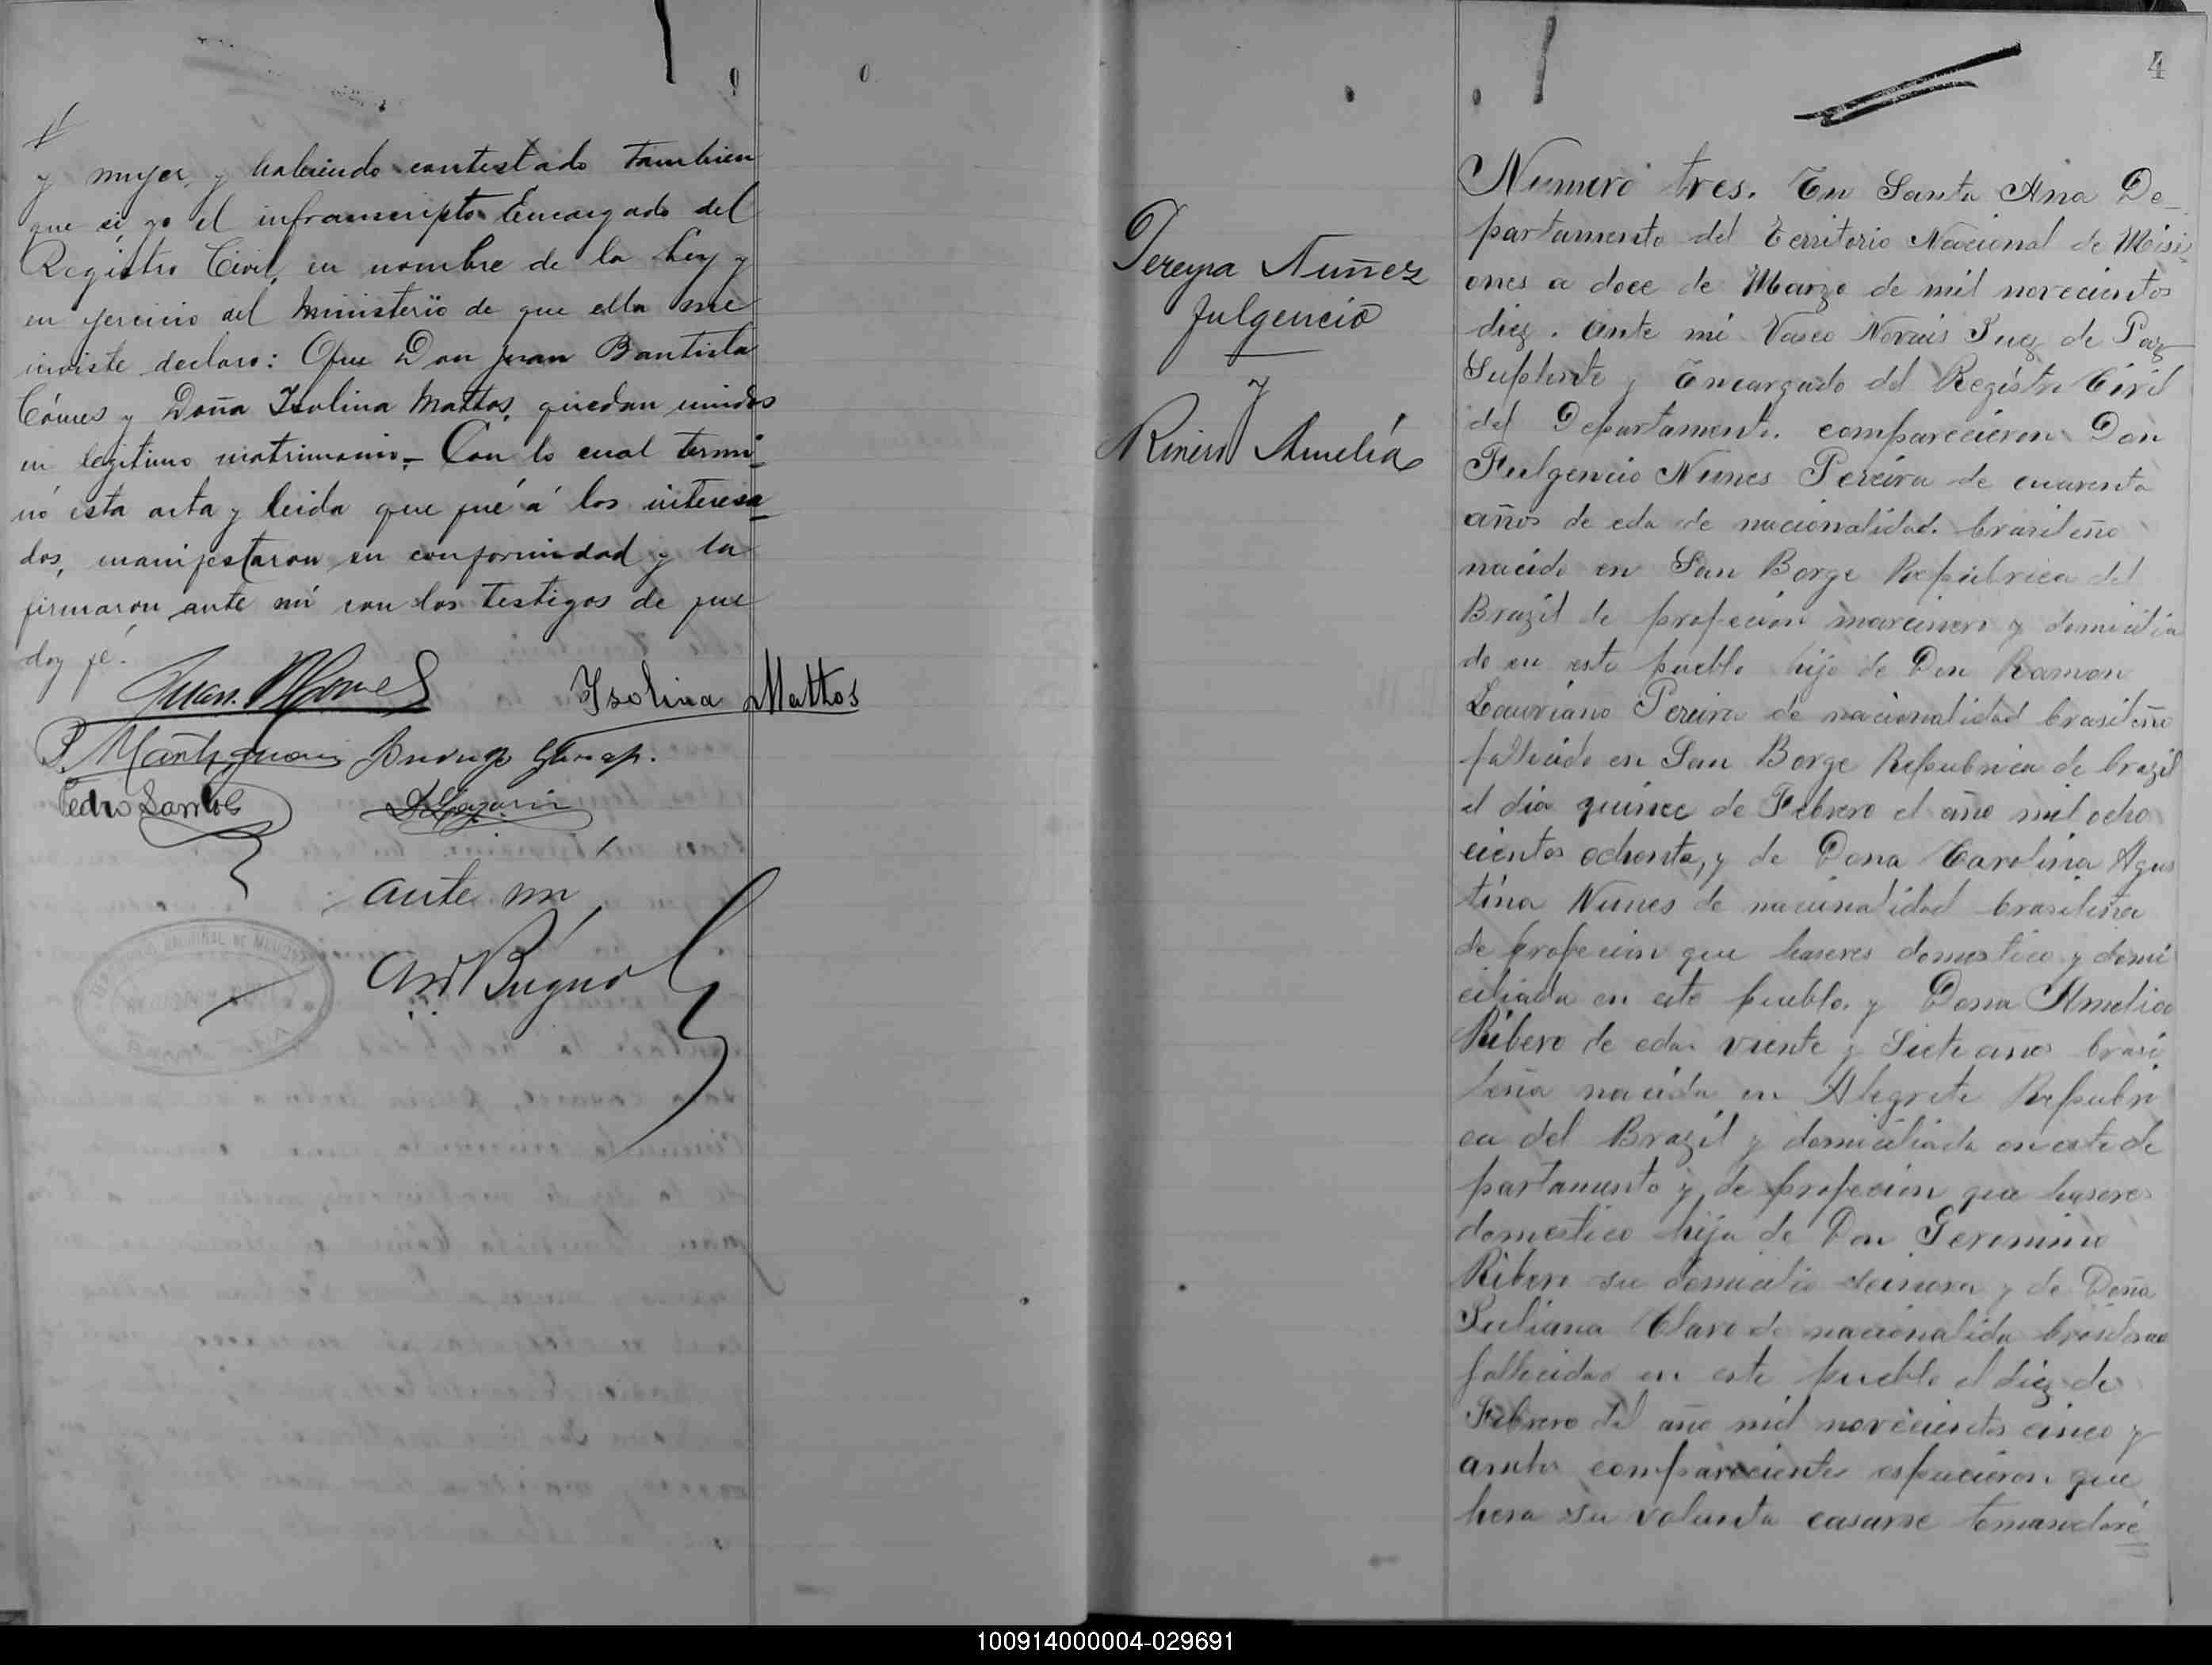 y mujer, y habiendo contestado tambien
que si, yo el infranscripto Encargado del
Registro Civil, en nombre de la Ley y
en ejercicio del Ministerio de que ella me
inviste declaro: Que Don Juan Bautista
Gómes y Doña Isolina Mattos, quedan unidos
en legitimo matrimonio_ Con lo cual termi_
nó esta acta y leida que fué á los interesa_
dos, manifestaron su conformidad y la
firmaron ante mí con los testigos de que
doy fé.
Juan B Gomes Isolina Mattos
Pedro Santos
ante mi
4
Pereyra Nuñez
Fulgencio
y
Rivero Amelia
Numero tres. En Santa Ana De_
partamento del Territorio Nacional de Misi_
ones a doce de Marzo de mil novecientos
diez. ante mi Vasco Novais Juez de Paz
Suplente y Encargado del Registro Civil
del Departamento. comparecieron Don
Fulgencio Nunes Pereira de cuarenta
años de eda de nacionalidad. brasileño
nacido en San Borge Repubrica del
Brazil de profecion marcinero y domicilia
do en este pueblo hijo de Don Ramon
Lauriano Pereira de nacionalidad brasileño
fallicido en San Borge Repubrica de brazil
el dia quince de Febrero el año mil ocho
cientos ochenta, y de Dona Carolina Agus
tina Nunes de nacionalidad brasileña
de profecion que haseres domestico y domi
ciliada en este pueblo. y Dona Amelia
Ribero de eda viente y Siete años brasi
leña nacida en Alegrete Repubri
ca del Brazil y domiciliada en este de
partamento y de profecion que haseres
domestico hija de Don Geronimo
Ribero su domicilio y de Doña
Juliana Claro de nacionalida
fallicida en este pueblo el diez de
Febrero del año mil novecientos cinco y
ambos compareciente que
hera su volunta casarse
100914000004-029691